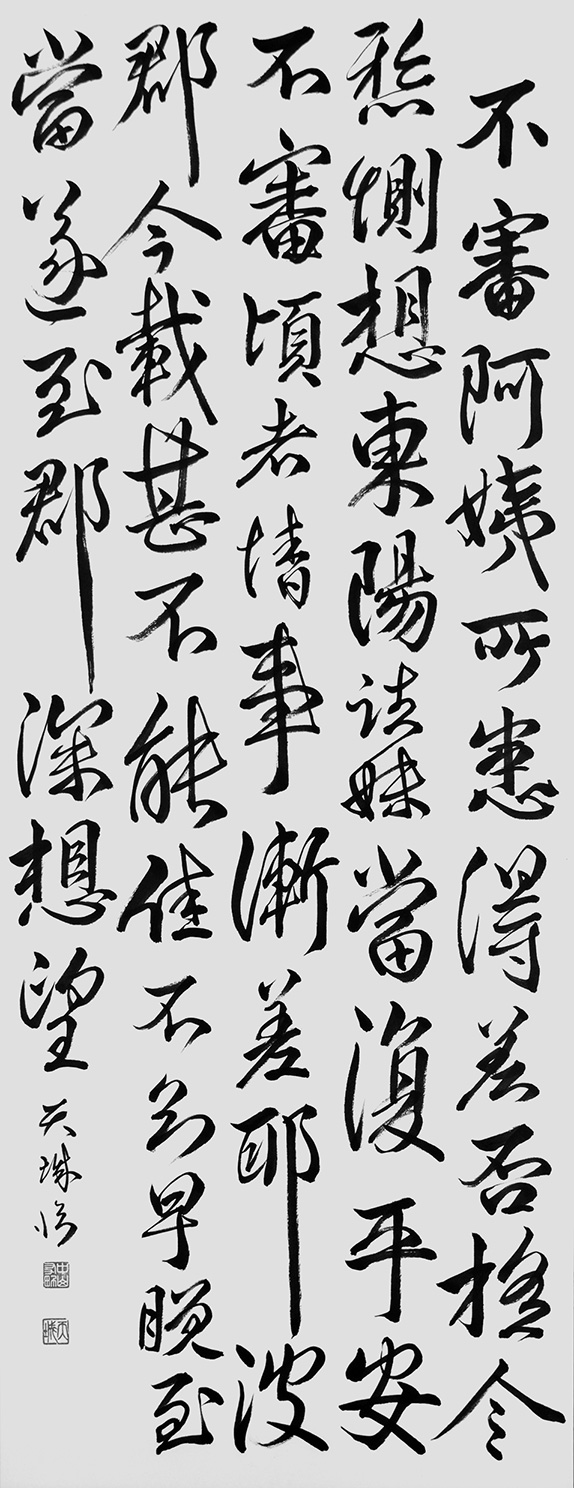 不審阿姨所患得差否極令
懸惻想東陽諸妹當復平安
不審頃者情事漸差耶彼
郡今載甚不能佳不知早晚至
當遂至郡深想望 天珠臨